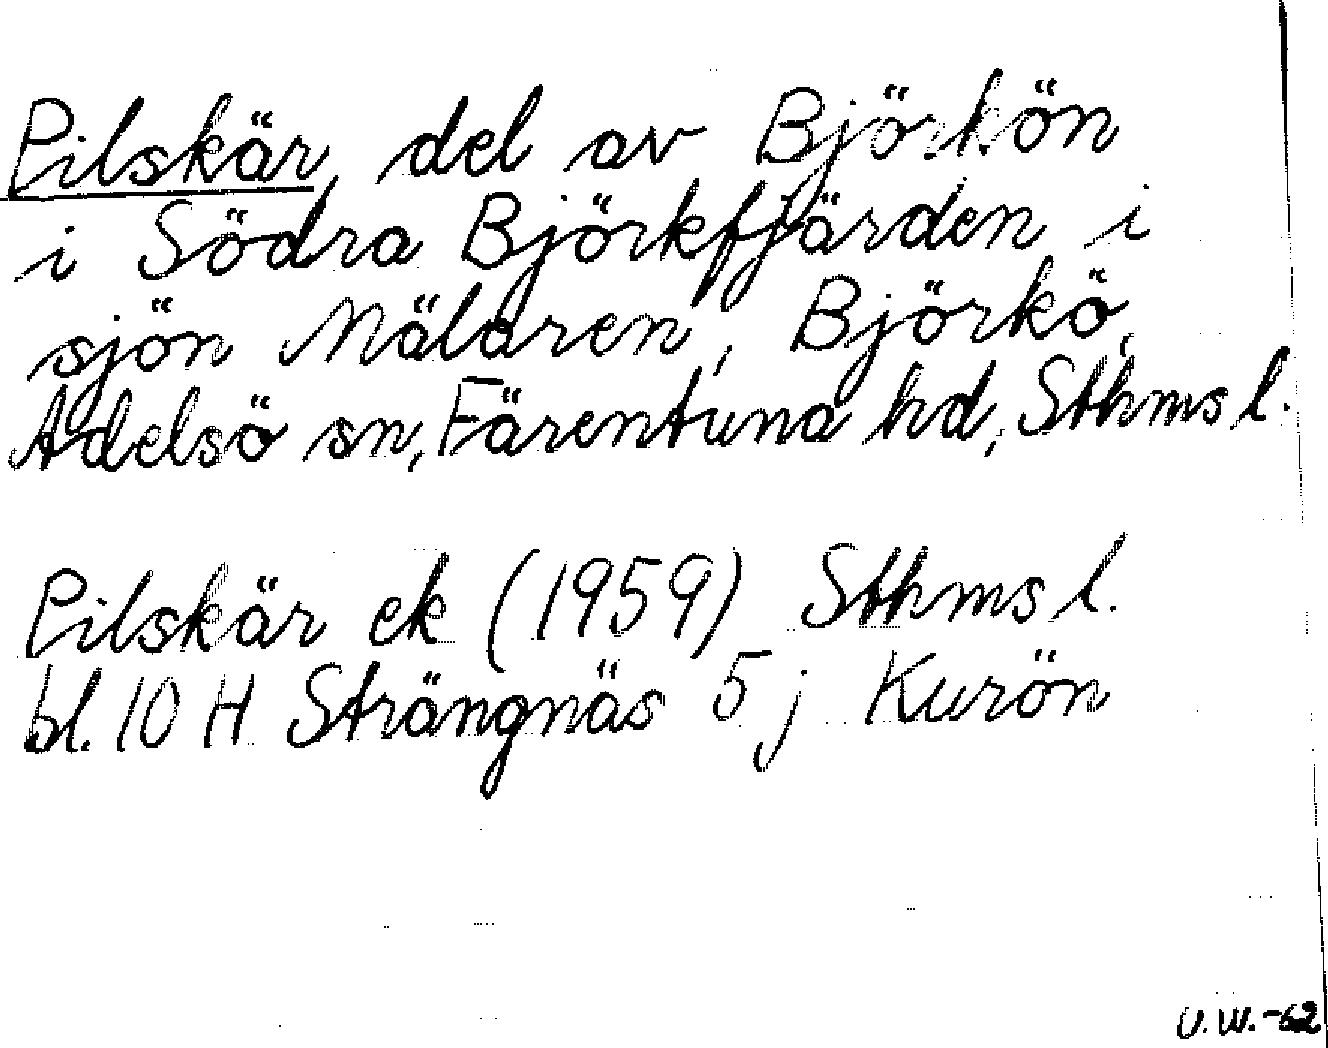 Pilskär, del av Björkön
i Södra Björkfjärden i
sjön Mälaren, Björkö,
Adelsö sn, Färentuna hd, Sthms l.
Pilskär ek (1959) Sthms l.
bl. 10 H Strängnäs 5 j Kurön
U.W.-62